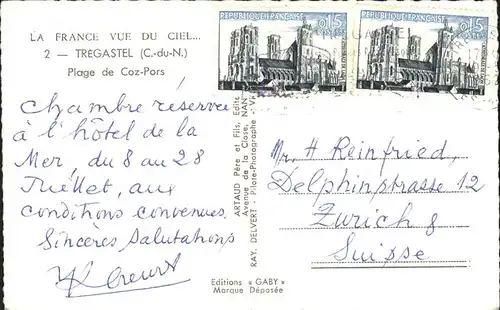 LA FRANCE VUE DU CIEL...
2 — TREGASTEL (C.-du-N.)
Plage de Coz-Pors
REPUBLIQUE FRANÇAISE 0,15
POSTES
REPUBLIQUE FRANÇAISE 0,15
POSTES
chambre réservée
à l'hôtel de la
Mer, du 8 au 28
Juillet, aux
conditions convenues
Sincères Salutations
ARTAUD Père et Fils, Edit.
Avenue de la Close, NAN
RAY. DELVERT - Pilote-Photographe - V
Mr. H Reinfried,
Delphinstrasse 12
Zurich 8
Suisse
Editions « GABY »
Marque Déposée